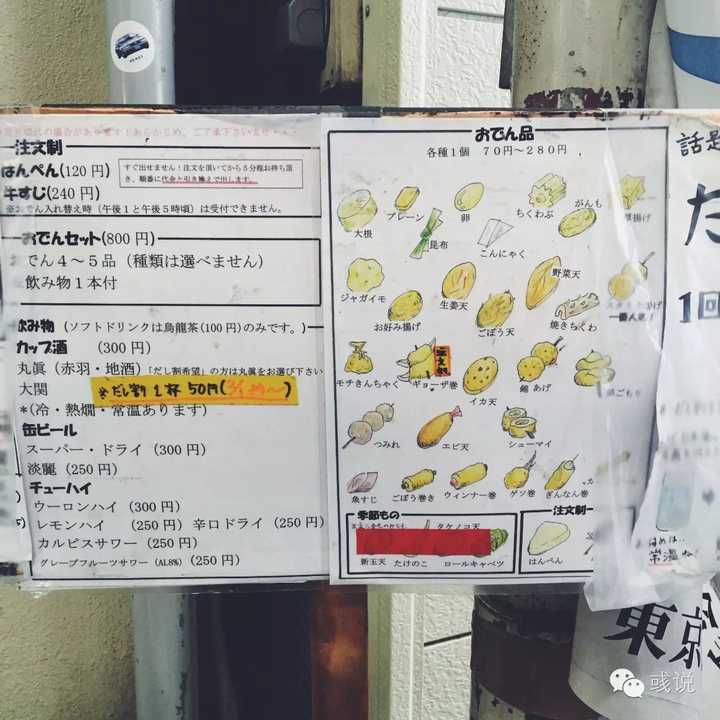 注文制
はんぺん(120円)
牛すじ(240円)
すぐ出せません!注文を頂いてから5分程お待ち頂
き、順番に代金と引き換えで出します。
※おでん入れ替え時(午後1と午後5時頃)は受付できません。
おでんセット(800円)
でん4~5品(種類は選べません)
飲み物1本付
飲み物(ソフトドリンクは烏龍茶(100円)のみです。)
カップ酒(300円)
丸眞(赤羽・地酒)「だし割希望」の方は丸眞をお選び下さい
大関
※だし割 1杯 50円
*(冷・熱燗・常温あります)
缶ビール
スーパー・ドライ(300円)
淡麗(250円)
チューハイ
ウーロンハイ(300円)
レモンハイ(250円)辛口ドライ(250円)
カルピスサワー(250円)
グレープフルーツサワー(AL8%)(250円)
おでん品
各種1個 70円~280円
大根
プレーン
昆布
卵
こんにゃく
ちくわぶ
がんも
厚揚げ
ジャガイモ
お好み揚げ
生姜天
ごぼう天
野菜天
焼きちくわ
一番人気!
モチきんちゃく
ギョーザ巻
イカ天
つみれ
エビ天
シューマイ
魚すじ
ごぼう巻き
ウィンナー巻
ゲソ巻
ぎんなん巻
季節もの
タケノコ天
新玉天
たけのこ
ロールキャベツ
注文制
はんぺん
話是
た
1回
常温
東京
彧说